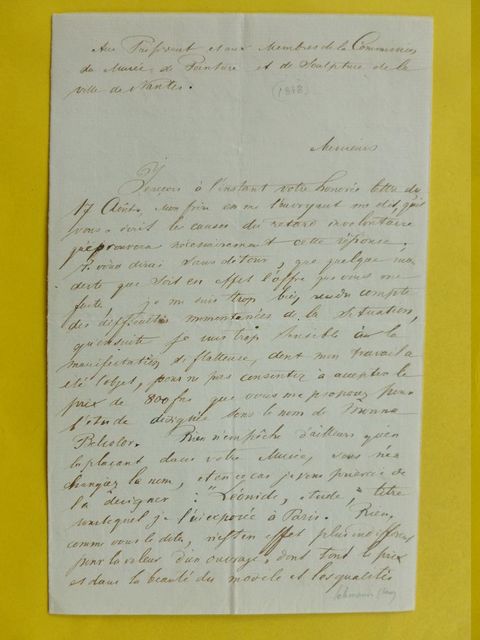 Au Président et aux Membres de la Commission
du Musée de Peinture et de Sculpture de la
ville de Nantes.
(1848)
Messieurs
Je reçois à l'instant votre honorée lettre du
17 Août. Mon frère en me l'envoyant me dit, qu'il
vous écrit les causes du retard involontaire
qu'éprouvera nécessairement cette réponse.
Je vous dirai sans détour, que quelque mo-
deste que soit en effet l'offre que vous me
faite, je me suis trop bien rendu compte
des difficultés de la situation,
qu'ensuite je suis trop sensible à la
manifestation si flatteuse, dont mon travail a
été l'objet, pour ne pas consentir à accepter le
prix de 800 frs que vous me proposez pour
l'étude désignée sous le nom de Donna
Rien n'empêche d'ailleurs qu'en
la plaçant dans votre Musée, vous n'en
changiez le nom, et en ce cas je vous prierais de
la désigner : Léonide, étude, titre
sous lequel je l'ai exposée à Paris. Rien,
comme vous le dites, n'est en effet plus indifférent
pour la valeur d'un ouvrage, dont tout le prix
est dans la beauté du modèle et les qualités